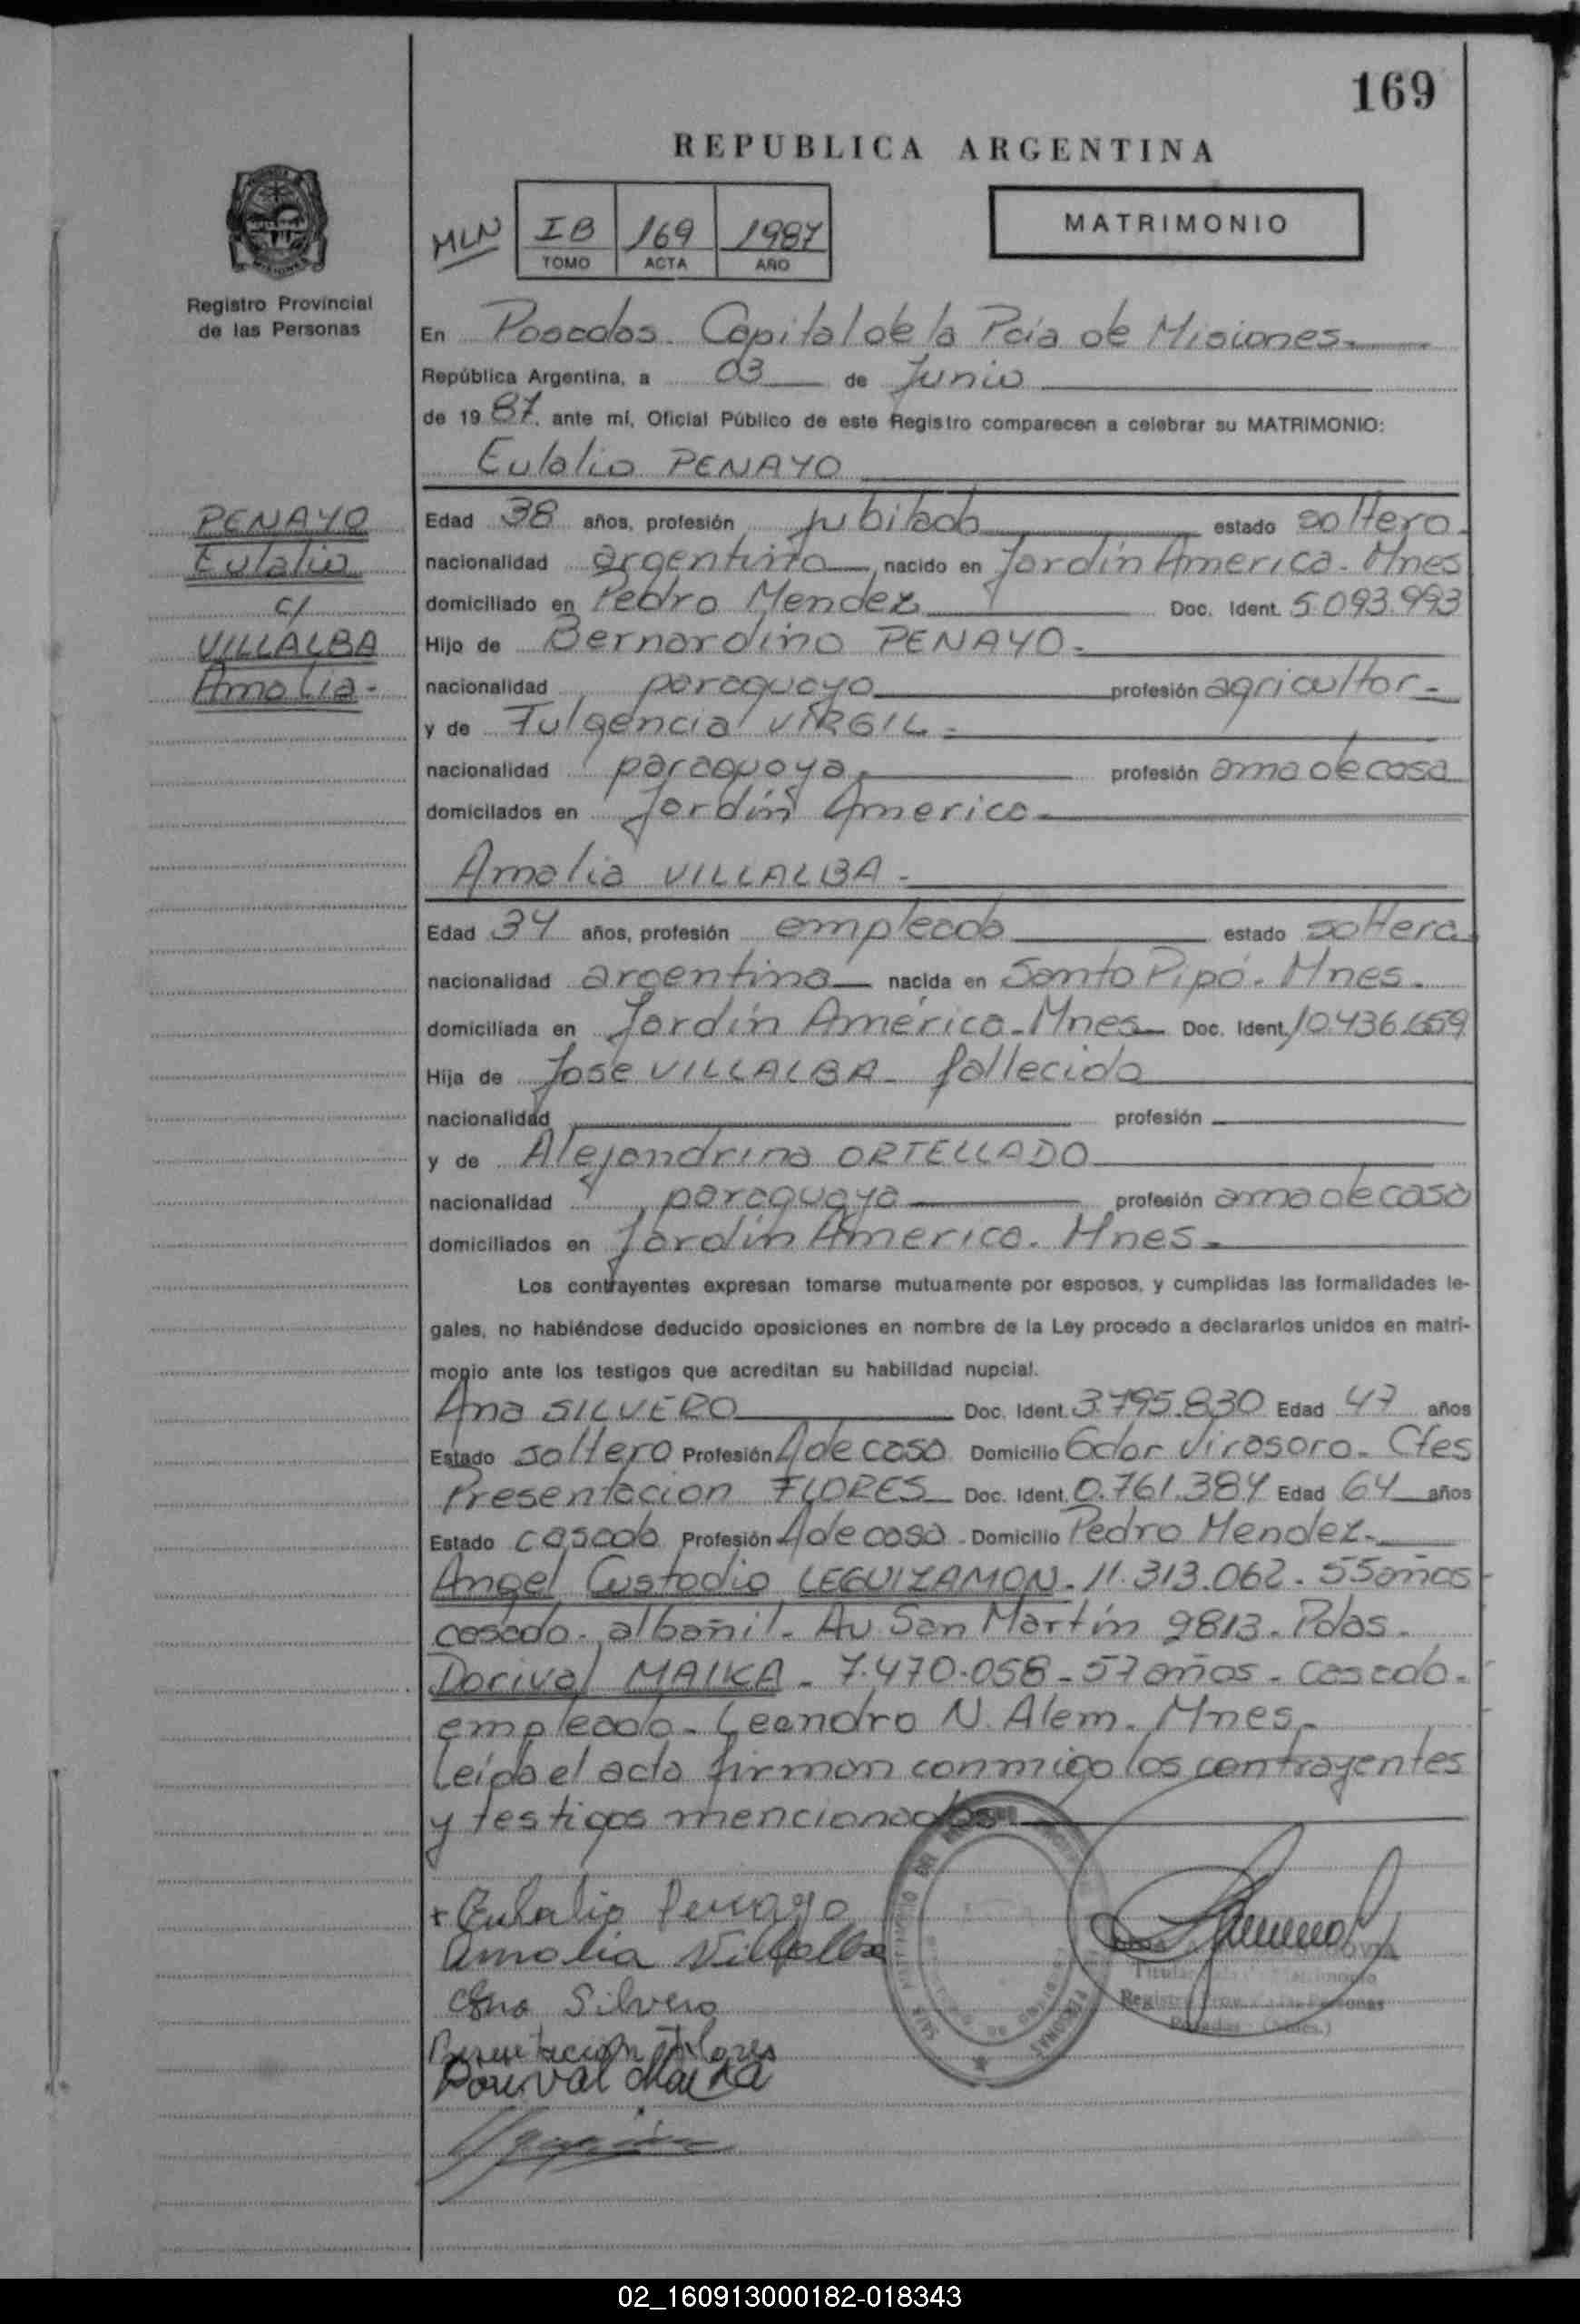 169
REPUBLICA ARGENTINA
MATRIMONIO
MLN IB 169 1987
TOMO ACTA AÑO
Registro Provincial
de las Personas
En Posadas. Capital de la Pcia de Misiones.
República Argentina, a 03 de Junio
de 1987, ante mí, Oficial Público de este Registro comparecen a celebrar su MATRIMONIO:
Eulalio PENAYO
PENAYO
Eulalio
c/
VILLALBA
Amalia-
Edad 38 años, profesión jubilado estado soltero.
nacionalidad argentino nacido en Jardín America. Mnes
domiciliado en Pedro Mendez Doc. Ident. 5.093.993
Hijo de Bernardino PENAYO.
nacionalidad paraguayo profesión agricultor.
y de Fulgencia VIRGIL.
nacionalidad paraguaya. profesión ama de casa
domicilados en Jardín America.
Amalia VILLALBA.
Edad 34 años, profesión empleada estado soltera.
nacionalidad argentina nacida en Santo Pipó. Mnes.
domiciliada en Jardín América. Mnes Doc. Ident. 10.436.659
Hija de Jose VILLALBA. fallecido
nacionalidad profesión
y de Alejandrina ORTELLADO
nacionalidad paraguaya profesión ama de casa
domiciliados en Jardín America. Mnes.
Los contrayentes expresan tomarse mutuamente por esposos, y cumplidas las formalidades le-
gales, no habiéndose deducido oposiciones en nombre de la Ley procedo a declararlos unidos en matri-
monio ante los testigos que acreditan su habilidad nupcial.
Ana SILVERO Doc. Ident. 3.795.830 Edad 47 años
Estado soltero Profesión A de casa Domicilio Gdor. Virasoro. Ctes
Presentacion FLORES Doc. Ident. 0.761.384 Edad 64 años
Estado casada Profesión A de casa. Domicilio Pedro Mendez.
Angel Custodio LEGUIZAMON. 11.313.062. 55 años
casado. albañil. Av. San Martín 9813. Pdas.
Dorival MAIKA. 7.470.058 - 57 años. casado.
empleado. Leandro N. Alem. Mnes.
Leída el acta firman conmigo los contrayentes
y testigos mencionados.
+ Eulalio Penayo
Amalia Villalba
Ana Silvero
Presentacion Flores
Dorival Maika
Titular Matrimonio
Registro Prov. de las Personas
Posadas - (Mnes.)
02_160913000182-018343